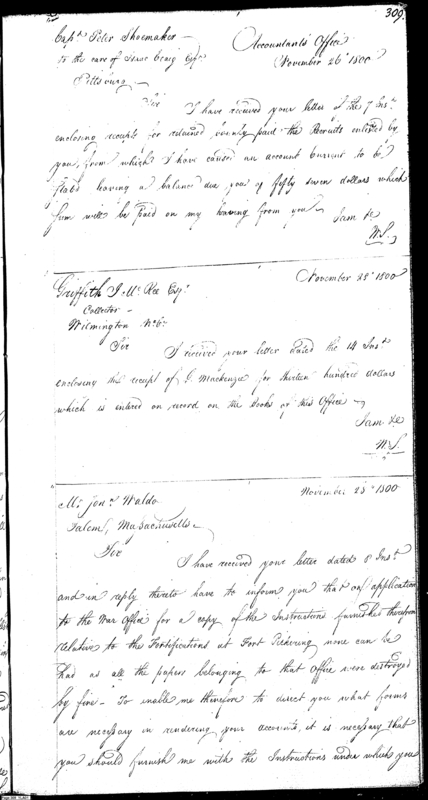 309.
Capt. Peter Shoemaker —
to the care of Isaac Craig Esqr.
Pittsburg —
Accountants Office
November 26th 1800
Sir I have received your letter of the 7 Inst.
enclosing receipts for retained bounty paid the Recruits enlisted by
you, from which I have caused an account Current to be
stated leaving a balance due you of fifty seven dollars which
sum will be paid on my hearing from you
I am &c
W. S.
November 28th 1800
Griffith J. McRee Esqr.
Collector —
Wilmington No. Ca.
Sir I received your letter dated the 14 Inst.
enclosing the receipt of G. Mackenzie for thirteen hundred dollars
which is entered on record on the Books of this Office —
I am &c
W. S.
November 28th 1800
Mr. Jona. Waldo
Salem, Massachusetts —
Sir I have received your letter dated 8 Inst.
and in reply thereto have to inform you that on application
to the War Office for a copy of the Instructions furnished therefrom
relative to the Fortifications at Fort Pickering none can be
had as all the papers belonging to that Office were destroyed
by fire — To enable me therefore to direct you what forms
are necessary in rendering your accounts, it is necessary that
you should furnish me with the Instructions under which you